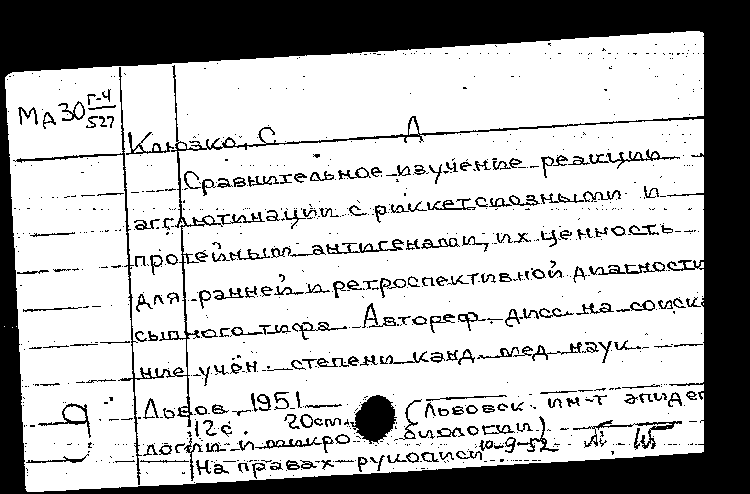 МА30 г-4/527
Клюзко, С Д
Сравнительное изучение реакции
агглютинации с риккетсиозными и
протейным антигенами, их ценность
для ранней и ретроспективной диагности
сыпного тифа. Автореф. дисс. на соиска
ние учён. степени канд. мед. наук.
Львов, 1951
12с. 20cm. (Львовск. ин-т эпидем
логии и микро биологии)
На правах рукописи. 10-9-52
9